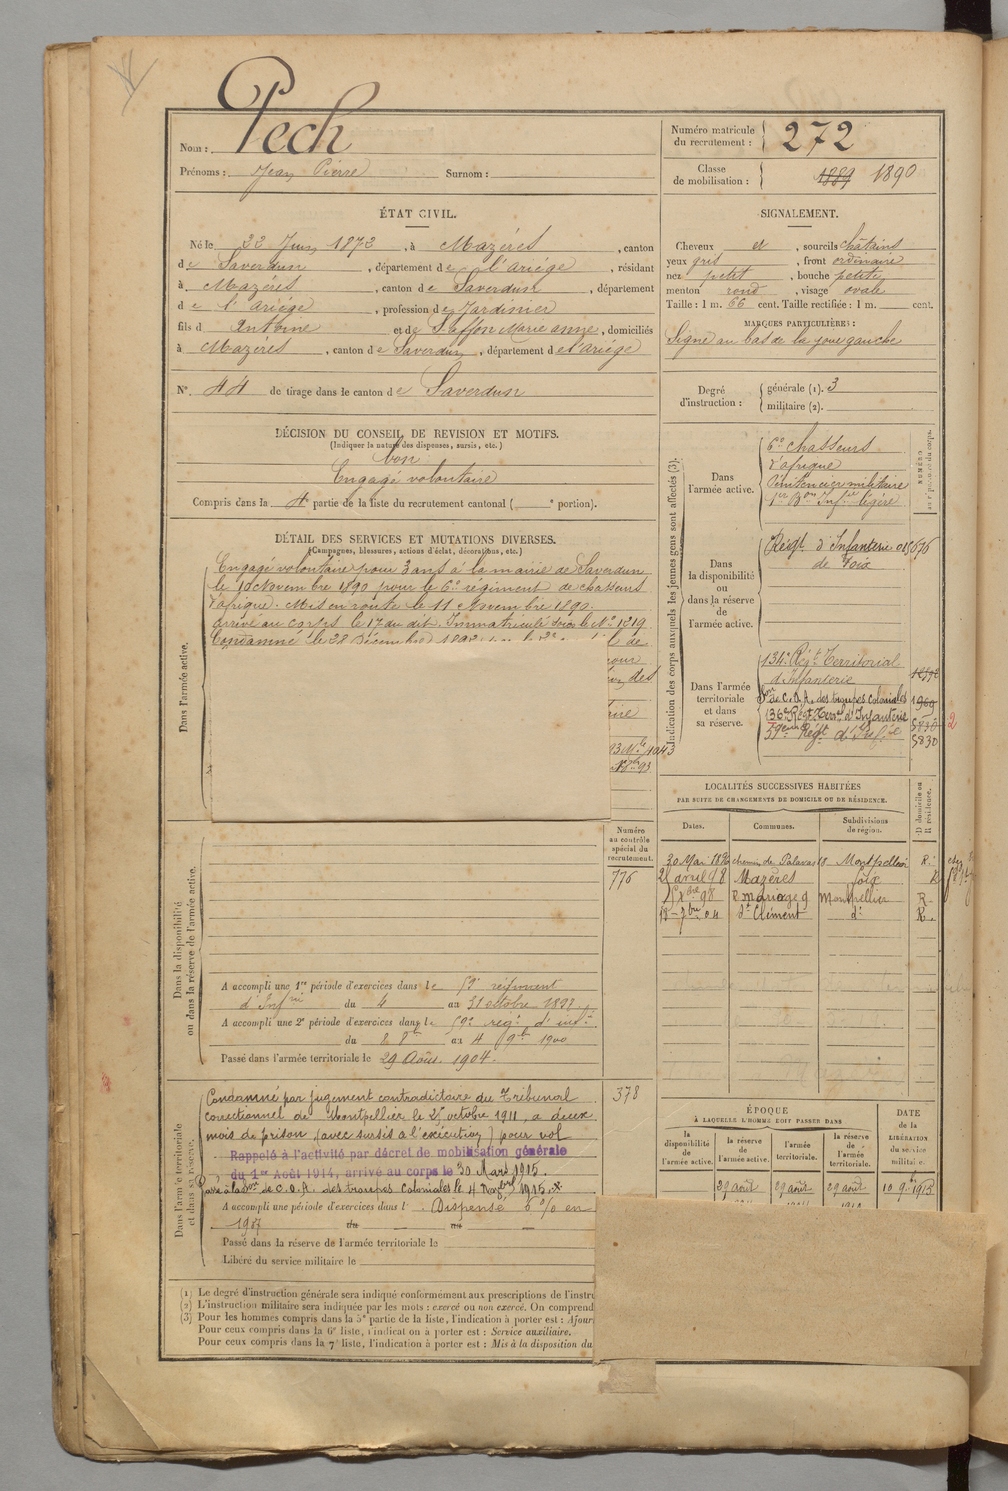 Nom : Pech
Prénoms : Jean Pierre Surnom :
ÉTAT CIVIL.
Né le 22 Juin 1872, à Mazères, canton
de Saverdun, département de l'Ariège, résidant
à Mazères, canton de Saverdun, département
de l'Ariège, profession de Jardinier
fils d Antoine et de Saffon Marie anne, domiciliés
à Mazères, canton de Saverdun, département de l'ariège
N° 44 de tirage dans le canton de Saverdun
DÉCISION DU CONSEIL DE REVISION ET MOTIFS.
(Indiquer la nature des dispenses, sursis, etc.)
bon
Engagé volontaire
Compris dans la 4e partie de la liste du recrutement cantonal ( e portion).
DÉTAIL DES SERVICES ET MUTATIONS DIVERSES.
(Campagnes, blessures, actions d'éclat, décorations, etc.)
Dans l'armée active.
Engagé volontaire pour 3 ans à la mairie de Saverdun
le 10 Novembre 1890 pour le 6e régiment de chasseurs
d'afrique. Mis en route le 11 Novembre 1890.
Arrivé au corps le 17 du dit. Immatriculé sous le N° 1219.
Condamné le 28 Décembre
de
des
Numéro
au contrôle
spécial du
recrutement.
776
Dans la disponibilité
ou dans la réserve de l'armée active.
A accompli une 1re période d'exercices dans le 59e régiment
d'Infrie du 4 au 31 octobre 1897
A accompli une 2e période d'exercices dans le 59e régt d'inf
du 8 8bre au 4 9b 1900
Passé dans l'armée territoriale le 29 Août 1904.
Dans l'armée territoriale
et dans sa réserve.
378
Condamné par jugement contradictoire du Tribunal
correctionnel de Montpellier le 25 octobre 1911, a deux
mois de prison (avec sursis à l'exécution) pour vol
Rappelé à l'activité par décret de mobilisation générale
du 1er Août 1914, arrivé au corps le 30 Mars 1915.
Passé à la son de C.O.A. des troupes Coloniales le 4 Novbre 1915.
A accompli une période d'exercices dans l Dispensé 6 % en
1907 du au
Passé dans la réserve de l'armée territoriale le
Libéré du service militaire le
(1) Le degré d'instruction générale sera indiqué conformément aux prescriptions de l'instru
(2) L'instruction militaire sera indiquée par les mots : exercé ou non exercé. On comprend
(3) Pour les hommes compris dans la 5e partie de la liste, l'indication à porter est : Ajour
Pour ceux compris dans la 6e liste, l'indication à porter est : Service auxiliaire.
Pour ceux compris dans la 7e liste, l'indication à porter est : Mis à la disposition du
Numéro matricule
du recrutement : 272
Classe
de mobilisation : 1889 1890
SIGNALEMENT.
Cheveux et, sourcils châtains
yeux gris, front ordinaire
nez petit, bouche petite
menton rond, visage ovale
Taille : 1 m. 66 cent. Taille rectifiée : 1 m. cent.
MARQUES PARTICULIÈRES :
Signe au bas de la joue gauche
Degré
d'instruction :
générale (1). 3
militaire (2).
Indication des corps auxquels les jeunes gens sont affectés (3).
Dans
l'armée active.
6e chasseurs
d'afrique
Pénitencier militaire
1er Bon Infie légère
Dans
la disponibilité
ou
dans la réserve
de
l'armée active.
Régt d'Infanterie
de Foix
Dans l'armée
territoriale
et dans
sa réserve.
134e Régt Territorial
d'Infanterie
son de C.O.A. des troupes coloniales
136e Régt Terr d'Infanterie
59eme Régt d'Infie
5830
5830
LOCALITÉS SUCCESSIVES HABITÉES
PAR SUITE DE CHANGEMENTS DE DOMICILE OU DE RÉSIDENCE.
Dates. Communes. Subdivisions de région. D domicile ou R résidence.
30 Mai 1896 chemin de Palavas 18 Montpellier R.
25 avril 98 Mazères foix
98 R mariage 9 Montpellier R
18-7bre 04 dt Clément dt R.
ÉPOQUE
À LAQUELLE L'HOMME DOIT PASSER DANS
la disponibilité de l'armée active. la réserve de l'armée active. l'armée territoriale. la réserve de l'armée territoriale.
DATE
de la
LIBÉRATION
du service
militaire.
29 août 29 août 29 août 10 9bre 1915